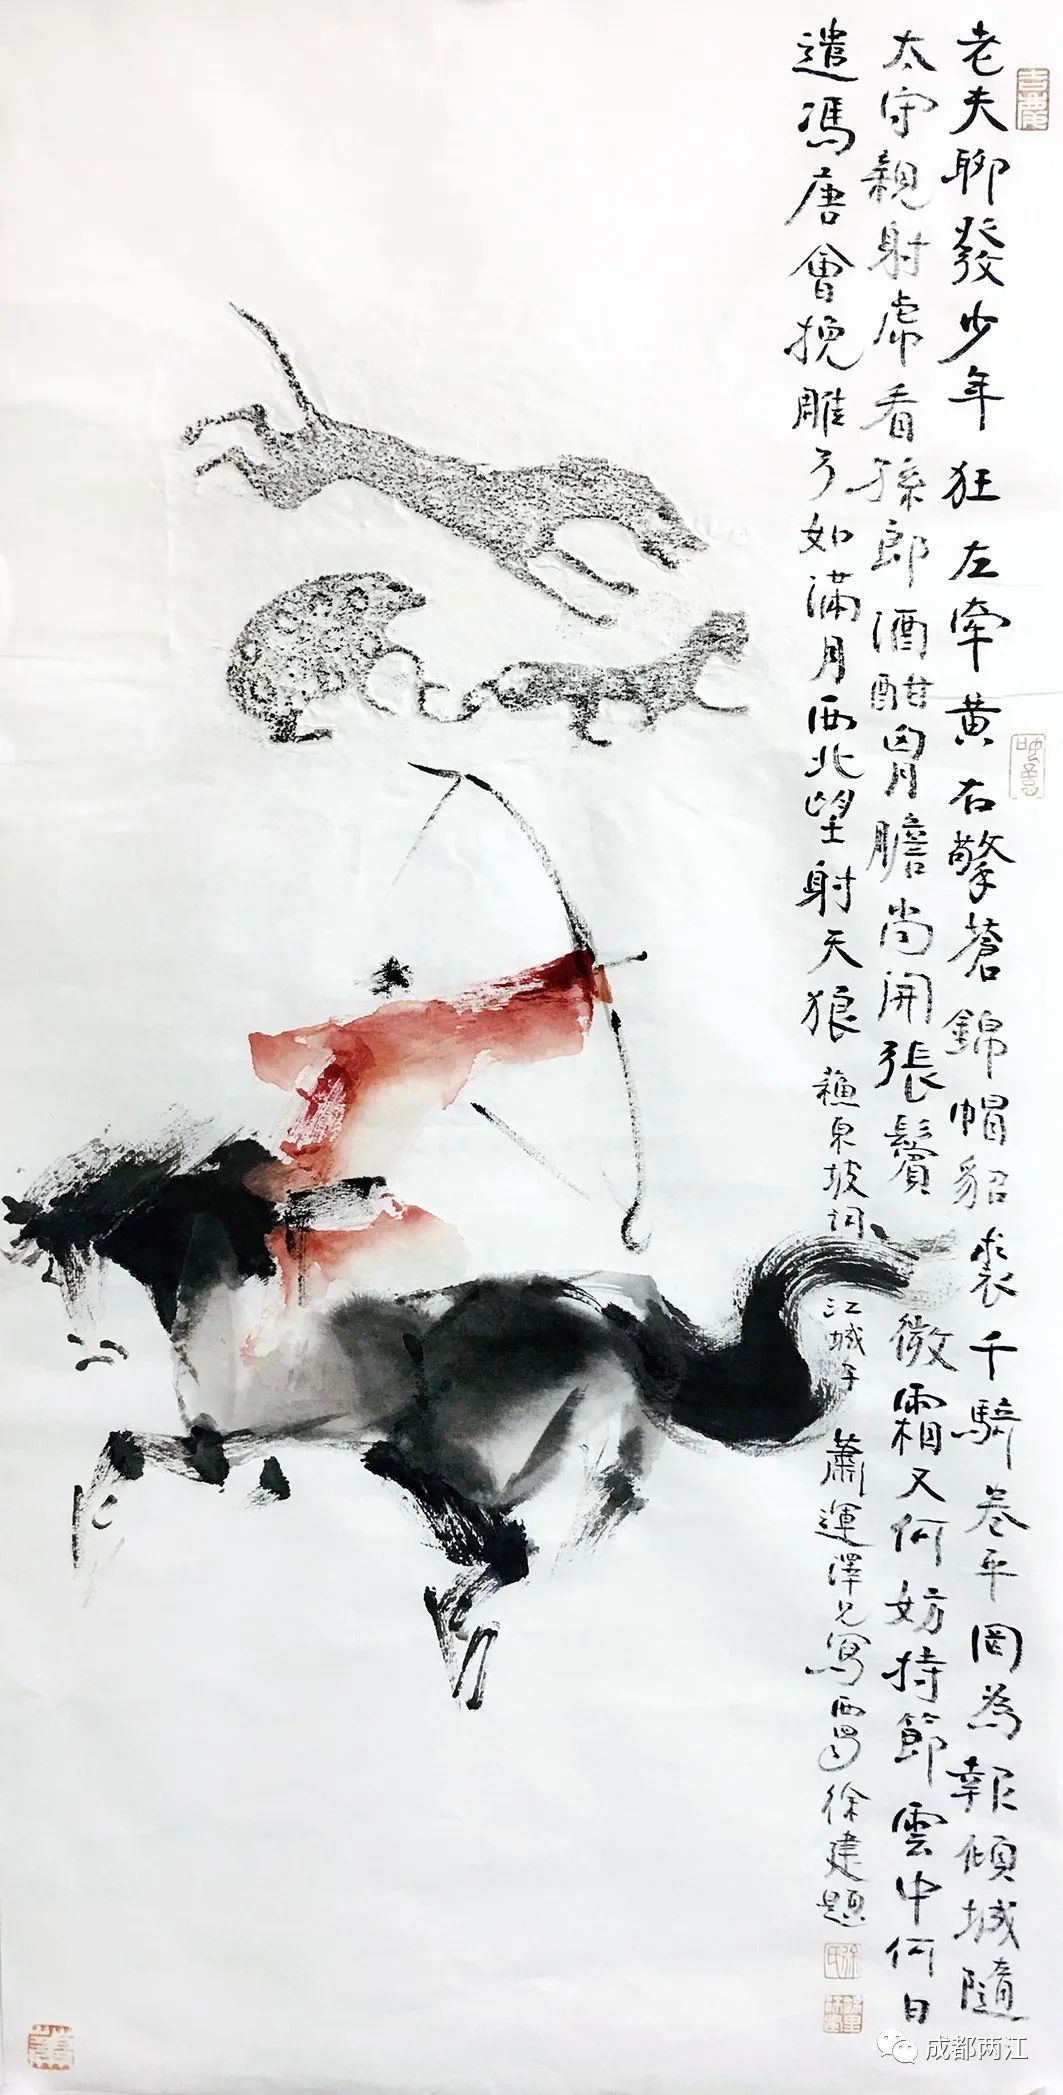 老夫聊發少年狂左牽黃右擎蒼錦帽貂裘千騎卷平岡為報傾城隨
太守親射虎看孫郎酒酣胷膽尚開張鬢微霜又何妨持節雲中何日
遣馮唐會挽雕弓如滿月西北望射天狼
蘇東坡詞江城子
蕭運澤兄寫西蜀徐建題
成都两江